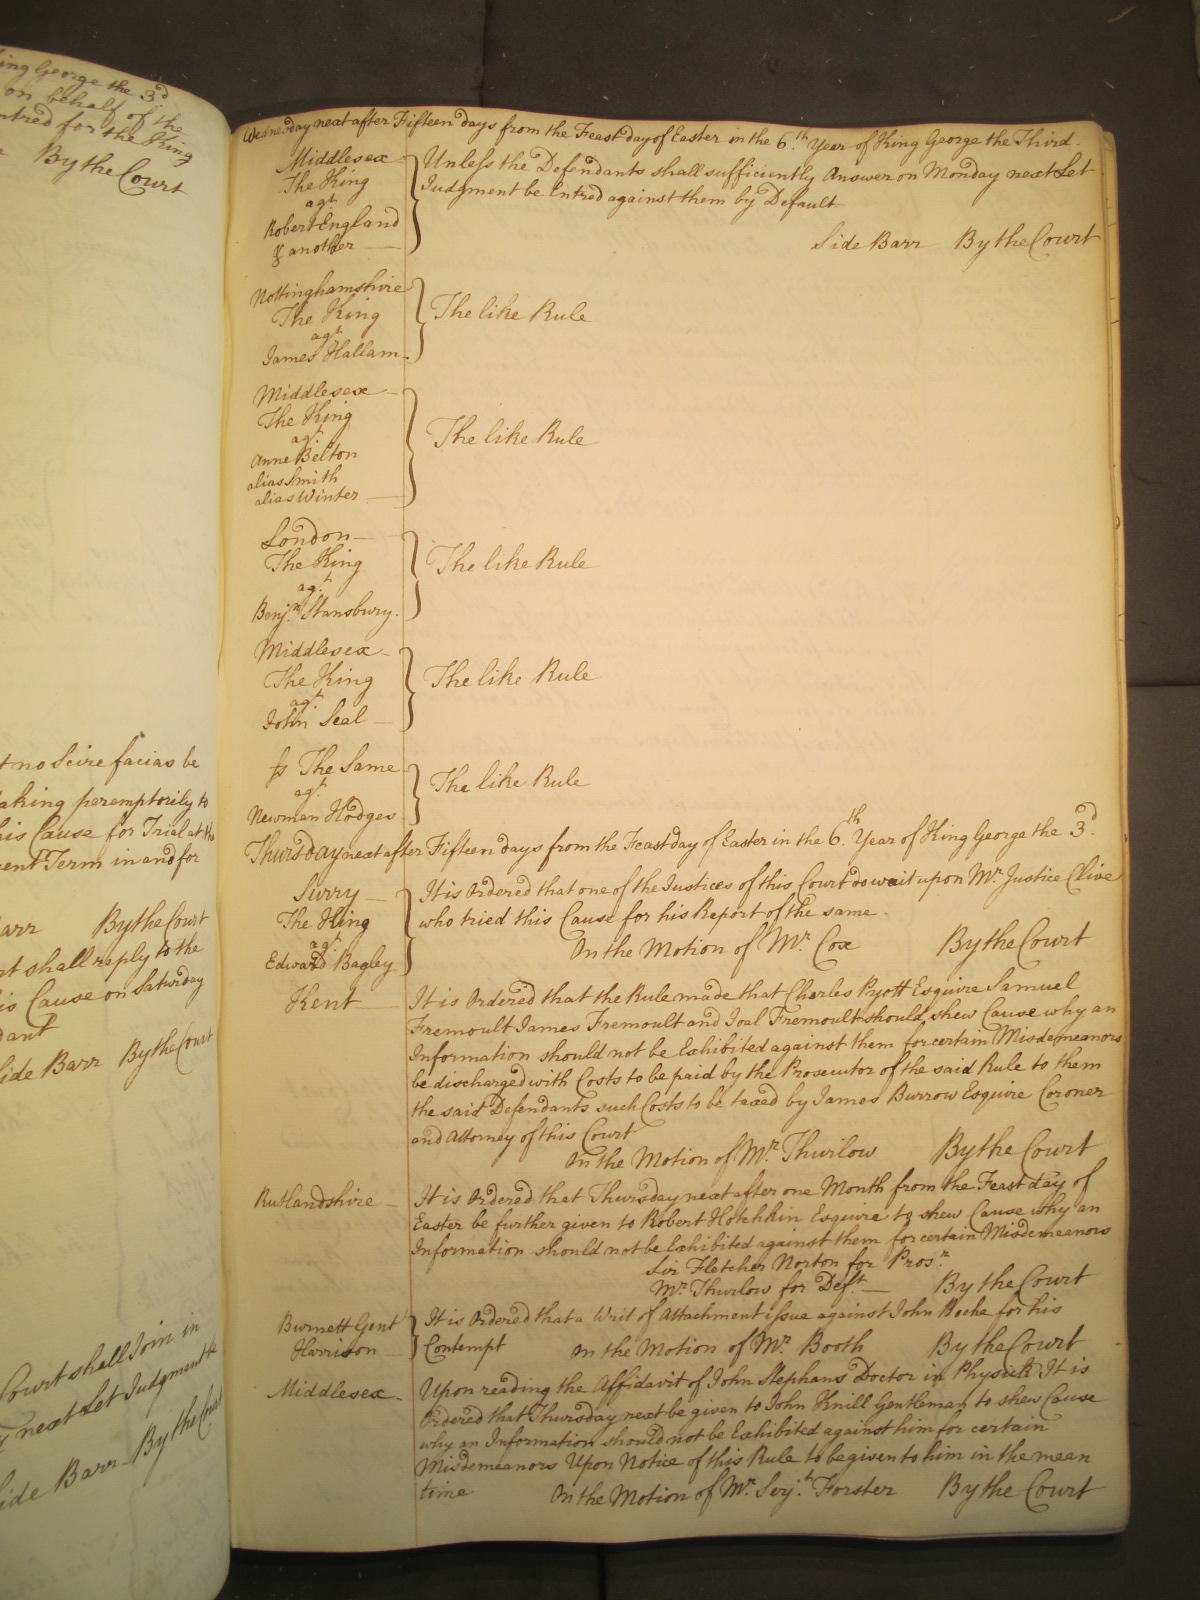 ing George the 3d
on behalf of the
ntred for the King
By the Court
t no Scire facias be
aking peremptorily to
his Cause for Trial at the
ent Term in and for
arr By the Court
rt shall reply to the
is Cause on Saturday
dant
Side Barr By the Court
Court shall Join in
next Let Judgment be
Side Barr By the Court
Wednesday next after Fifteen days from the Feast day of Easter in the 6.th Year of King George the Third.
Middlesex
The King
agt.
Robert England
& another
Unless the Defendants shall sufficiently Answer on Monday next Let
Judgment be Entred against them by Default
Side Barr By the Court
Nottinghamshire
The King
agt.
James Hallam
The like Rule
Middlesex
The King
agt.
Anne Belton
alias Smith
alias Winter
The like Rule
London
The King
agt.
Benjn. Stansbury.
The like Rule
Middlesex
The King
agt.
John Seal
The like Rule
Ss The Same
agt.
Newman Hodges
The like Rule
Thursday next after Fifteen days from the Feast day of Easter in the 6.th Year of King George the 3d.
Surry
The King
agt.
Edward Bagley
It is Ordered that one of the Justices of this Court do wait upon Mr. Justice Clive
who tried this Cause for his Report of the same.
On the Motion of Mr. Cox By the Court
Kent
It is Ordered that the Rule made that Charles Pyott Esquire Samuel
Fremoult James Fremoult and Joal Fremoult should shew Cause why an
Information should not be Exhibited against them for certain Misdemeanors
be discharged with Costs to be paid by the Prosecutor of the said Rule to them
the said Defendants such Costs to be taxed by James Burrow Esquire Coroner
and Attorney of this Court
On the Motion of Mr. Thurlow By the Court
Rutlandshire
It is Ordered that Thursday next after one Month from the Feast day of
Easter be further given to Robert Hotchkin Esquire to shew Cause why an
Information should not be Exhibited against them for certain Misdemeanors
Sir Fletcher Norton for Prosr.
Mr. Thurlow for Deft. By the Court
Burnett Gent
Harrison
It is Ordered that a Writ of Attachment issue against John Beeke for his
Contempt On the Motion of Mr. Booth By the Court
Middlesex
Upon reading the Affidavit of John Stephans Doctor in Physick It is
Ordered that Thursday next be given to John Knill Gentleman to shew Cause
why an Information should not be Exhibited against him for certain
Misdemeanors Upon Notice of this Rule to be given to him in the mean
time On the Motion of Mr. Serjt. Forster By the Court